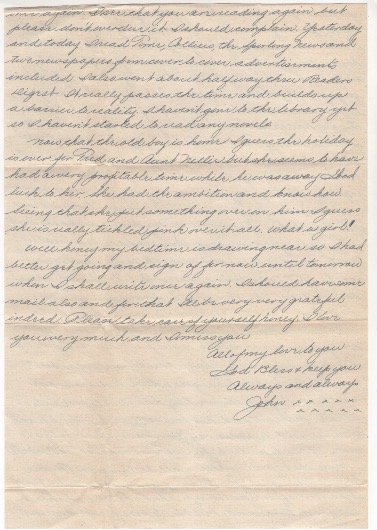 again. I see that you are reading again but
please don't overdue it I should complain. Yesterday
and today I read Time, Colliers, the Sporting News and
two newspapers from cover to cover, advertisements
included. I also went about half way thru Readers
Digest. It really passes the time and builds up
a barrier to reality. I haven't gone to the library yet
so I haven't started to read any novels.
Now that the old boy is home I guess the holiday
is over for and Aunt Nellie but she seems to have
had a very profitable time while he was away. Good
luck to her. She had the ambition and knows how
being that she put something over on him I guess
she is really tickled pink over it all. What a girl!
Well honey my bedtime is drawing near so I had
better get going and sign off for now until tomorrow
when I shall write once again. I should have some
mail also and for that I'll be very very grateful
indeed. Please take care of yourself honey I love
you very much and I miss you
All of my love to you
God Bless & keep you
Always and always
John x x x x x
x x x x x